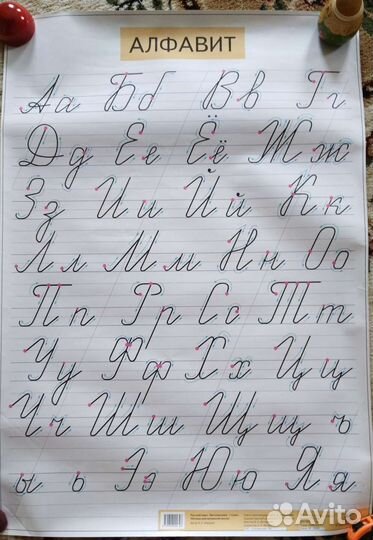 АЛФАВИТ
Аа Бб Вв Гг
Дд Ее Ёё Жж
Зз Ии Йй Кк
Лл Мм Нн Оо
Пп Рр Сс Тт
Уу Фф Хх Цц
Чч Шш Щщ ъ
ы ь Ээ Юю Яя
Avito